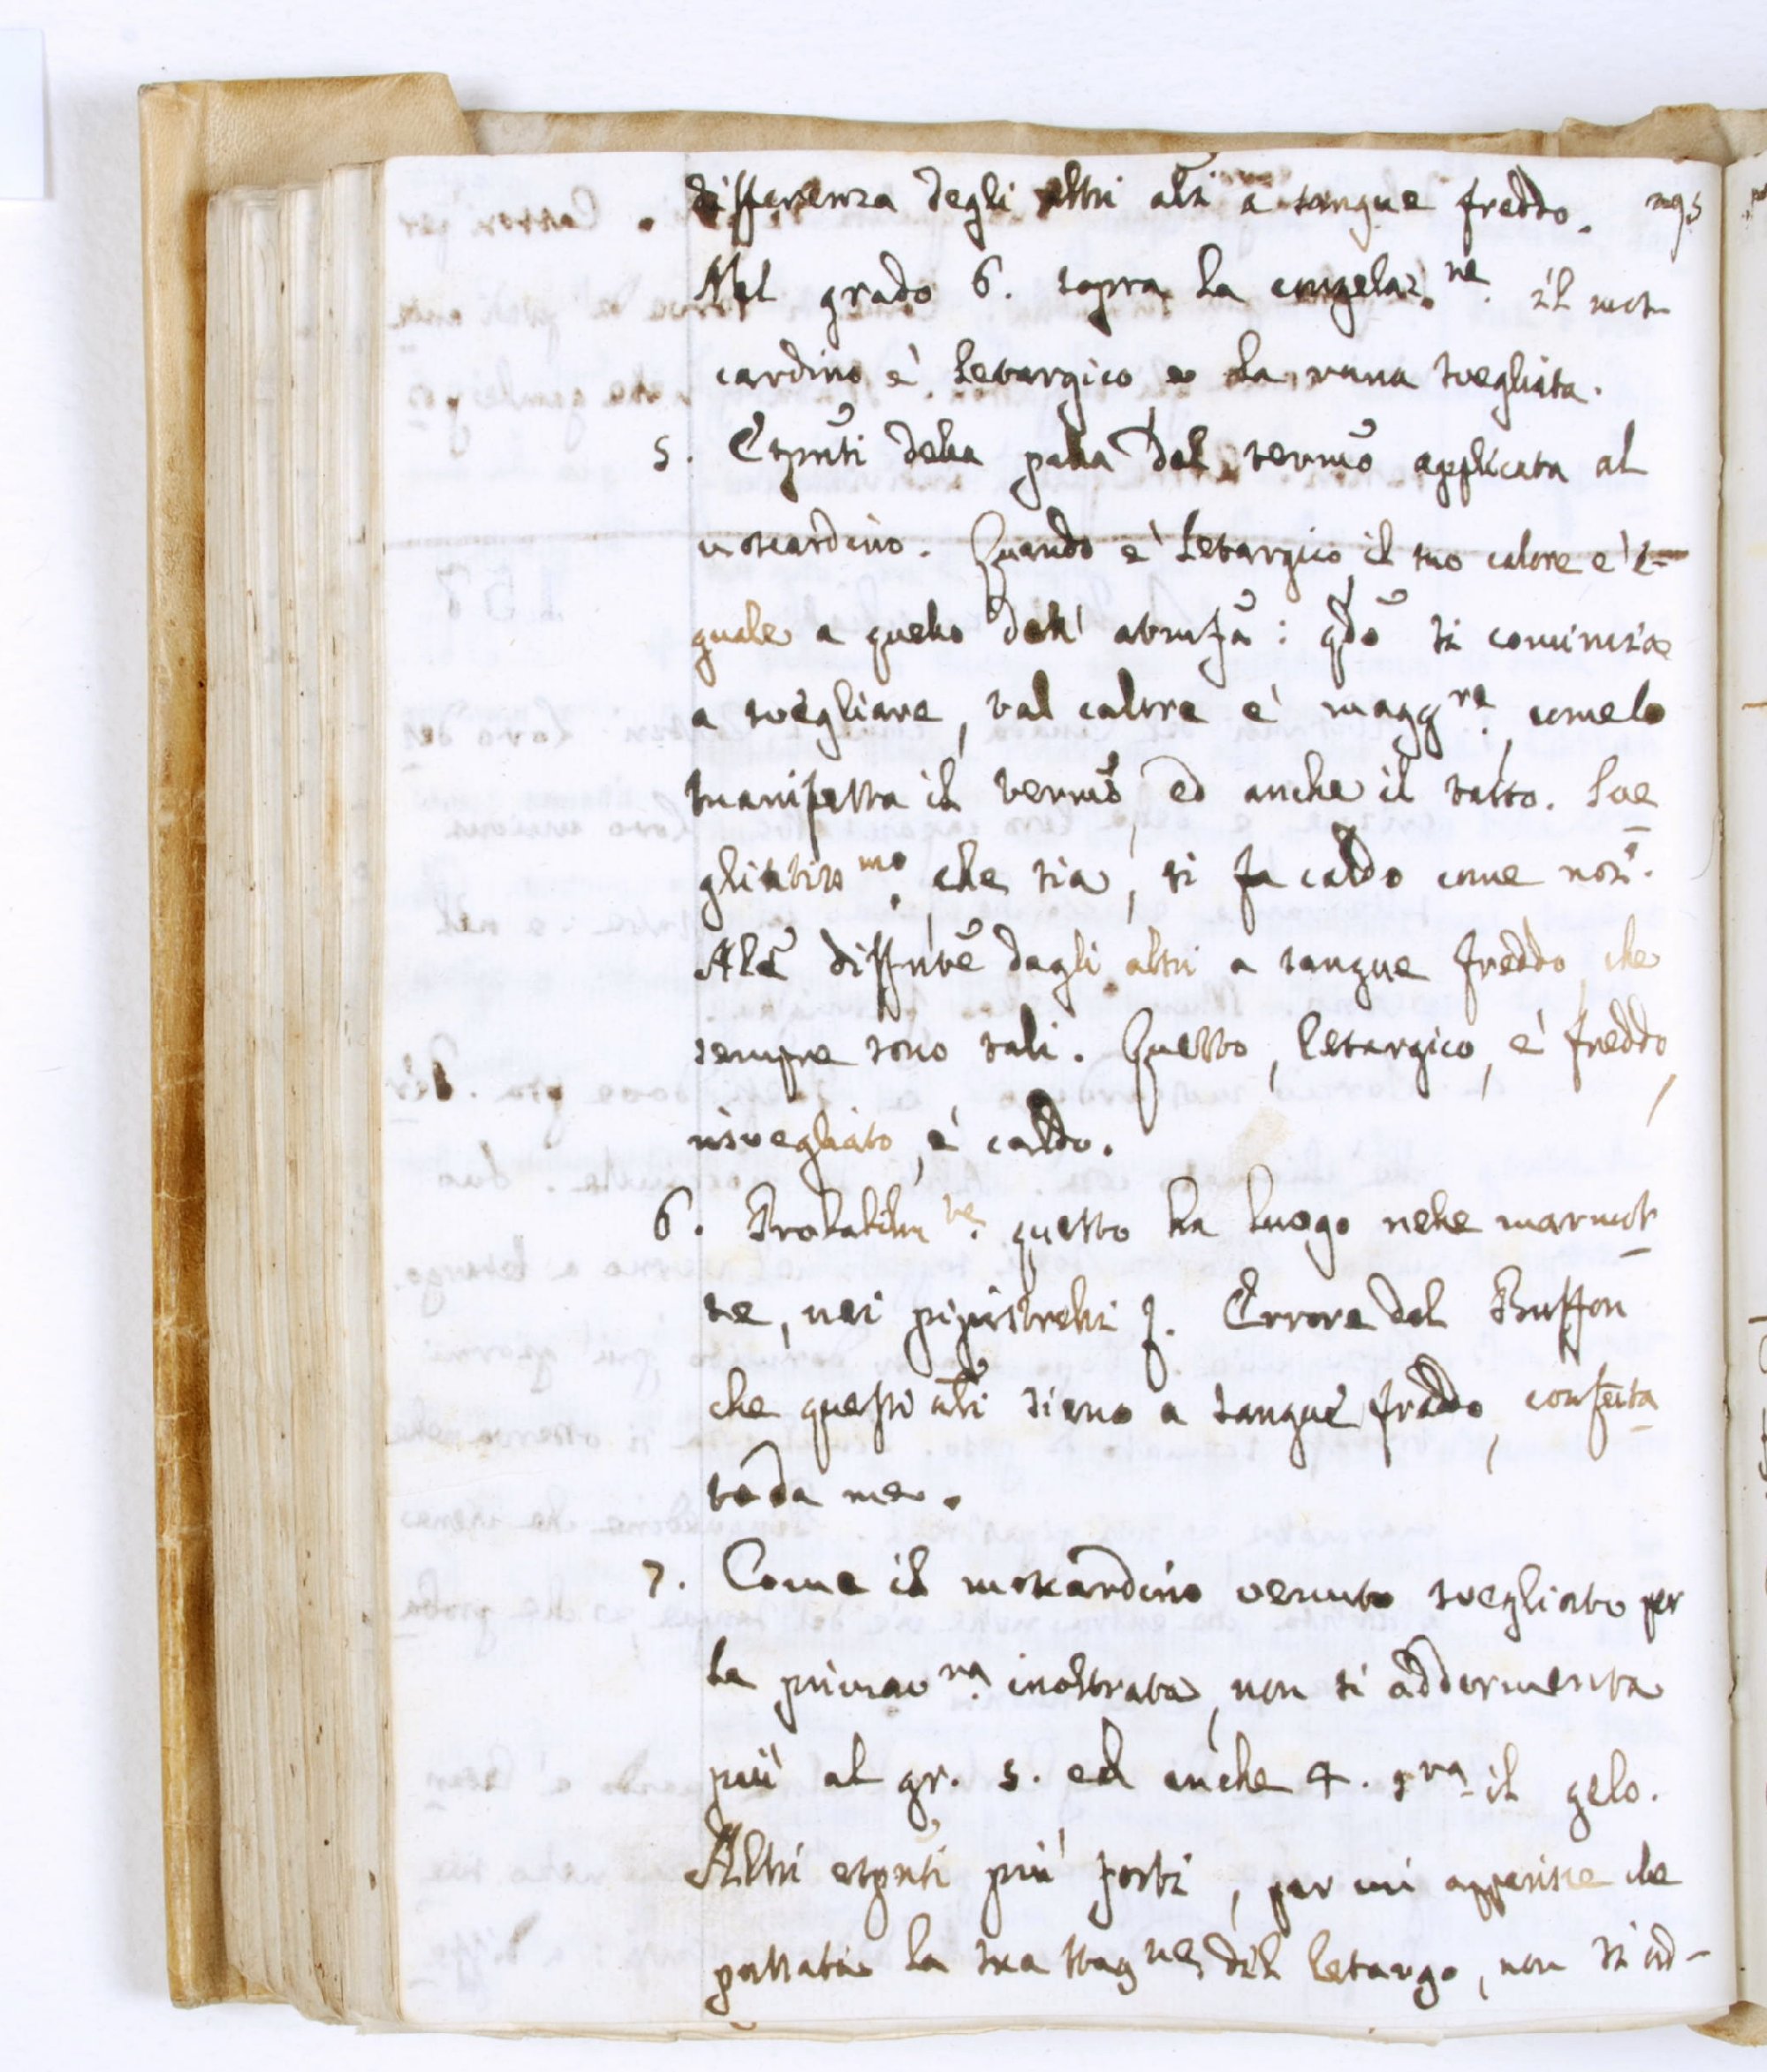 differenza degli altri ali a sangue freddo.
Nel grado 6. sopra la congelaz.ne il mos
cardino è letargico e la rana svegliata.
5. Esprti della palla del termo applicata al
moscardino. Quando è letargico il suo calore è e=
guale a quello dell' atmosfa: qdo si comincia
a svegliare, tal calore è magg.re, come lo
manifesta il termo, ed anche il tatto. Sve
gliatiss.mo che sia, si fa caldo come noi.
Ale diffnte dagli altri a sangue freddo che
sempre sono tali. Questo, letargico, è freddo,
risvegliato, è caldo.
6. Probabilm.te questo ha luogo nelle marmot
te, nei pipistrelli Errore del Buffon
che questi ali siano a sangue freddo, confuta
to da me.
7. Come il moscardino venuto svegliato per
la primav.ra inoltrata, non si addormenta
più al gr. 5. ed anche 4. s.ra il gelo.
Altri esprti più forti, per cui apparisce che
passata la sua stag.ne del letargo, non si ad-